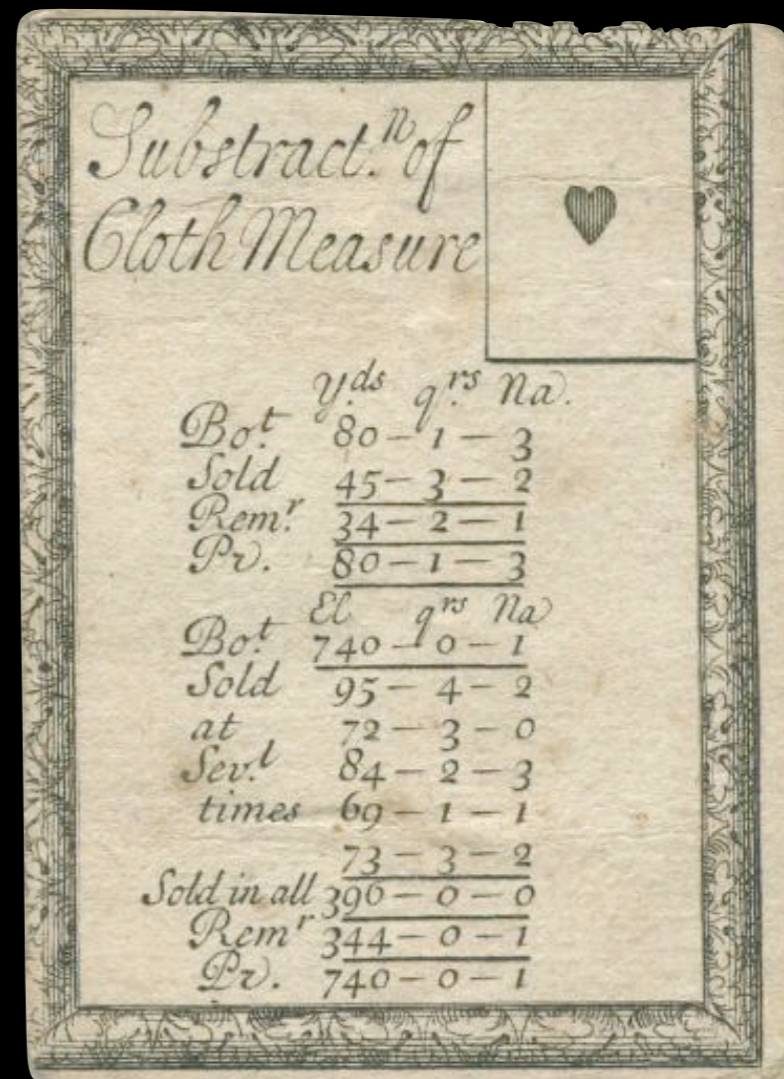 Substract.n of
Cloth Measure
y.ds q.rs Na.
Bo.t 80 – 1 – 3
Sold 45 – 3 – 2
Rem.r 34 – 2 – 1
Pr. 80 – 1 – 3
El qrs Na
Bo.t 740 – 0 – 1
Sold 95 – 4 – 2
at 72 – 3 – 0
Sev.l 84 – 2 – 3
times 69 – 1 – 1
73 – 3 – 2
Sold in all 396 – 0 – 0
Remr 344 – 0 – 1
Pr. 740 – 0 – 1